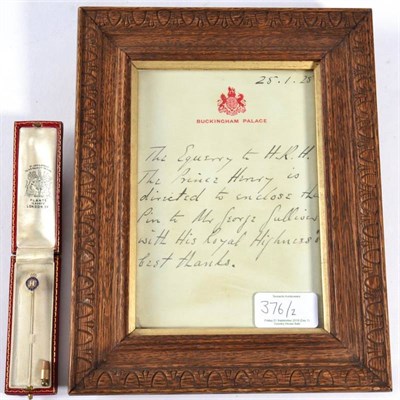 25-1-28
BUCKINGHAM PALACE
The Equerry to H.R.H.
The Prince Henry is
directed to enclose the
Pin to Mr George
with His Royal Highness's
best thanks.
376/2
LONDON